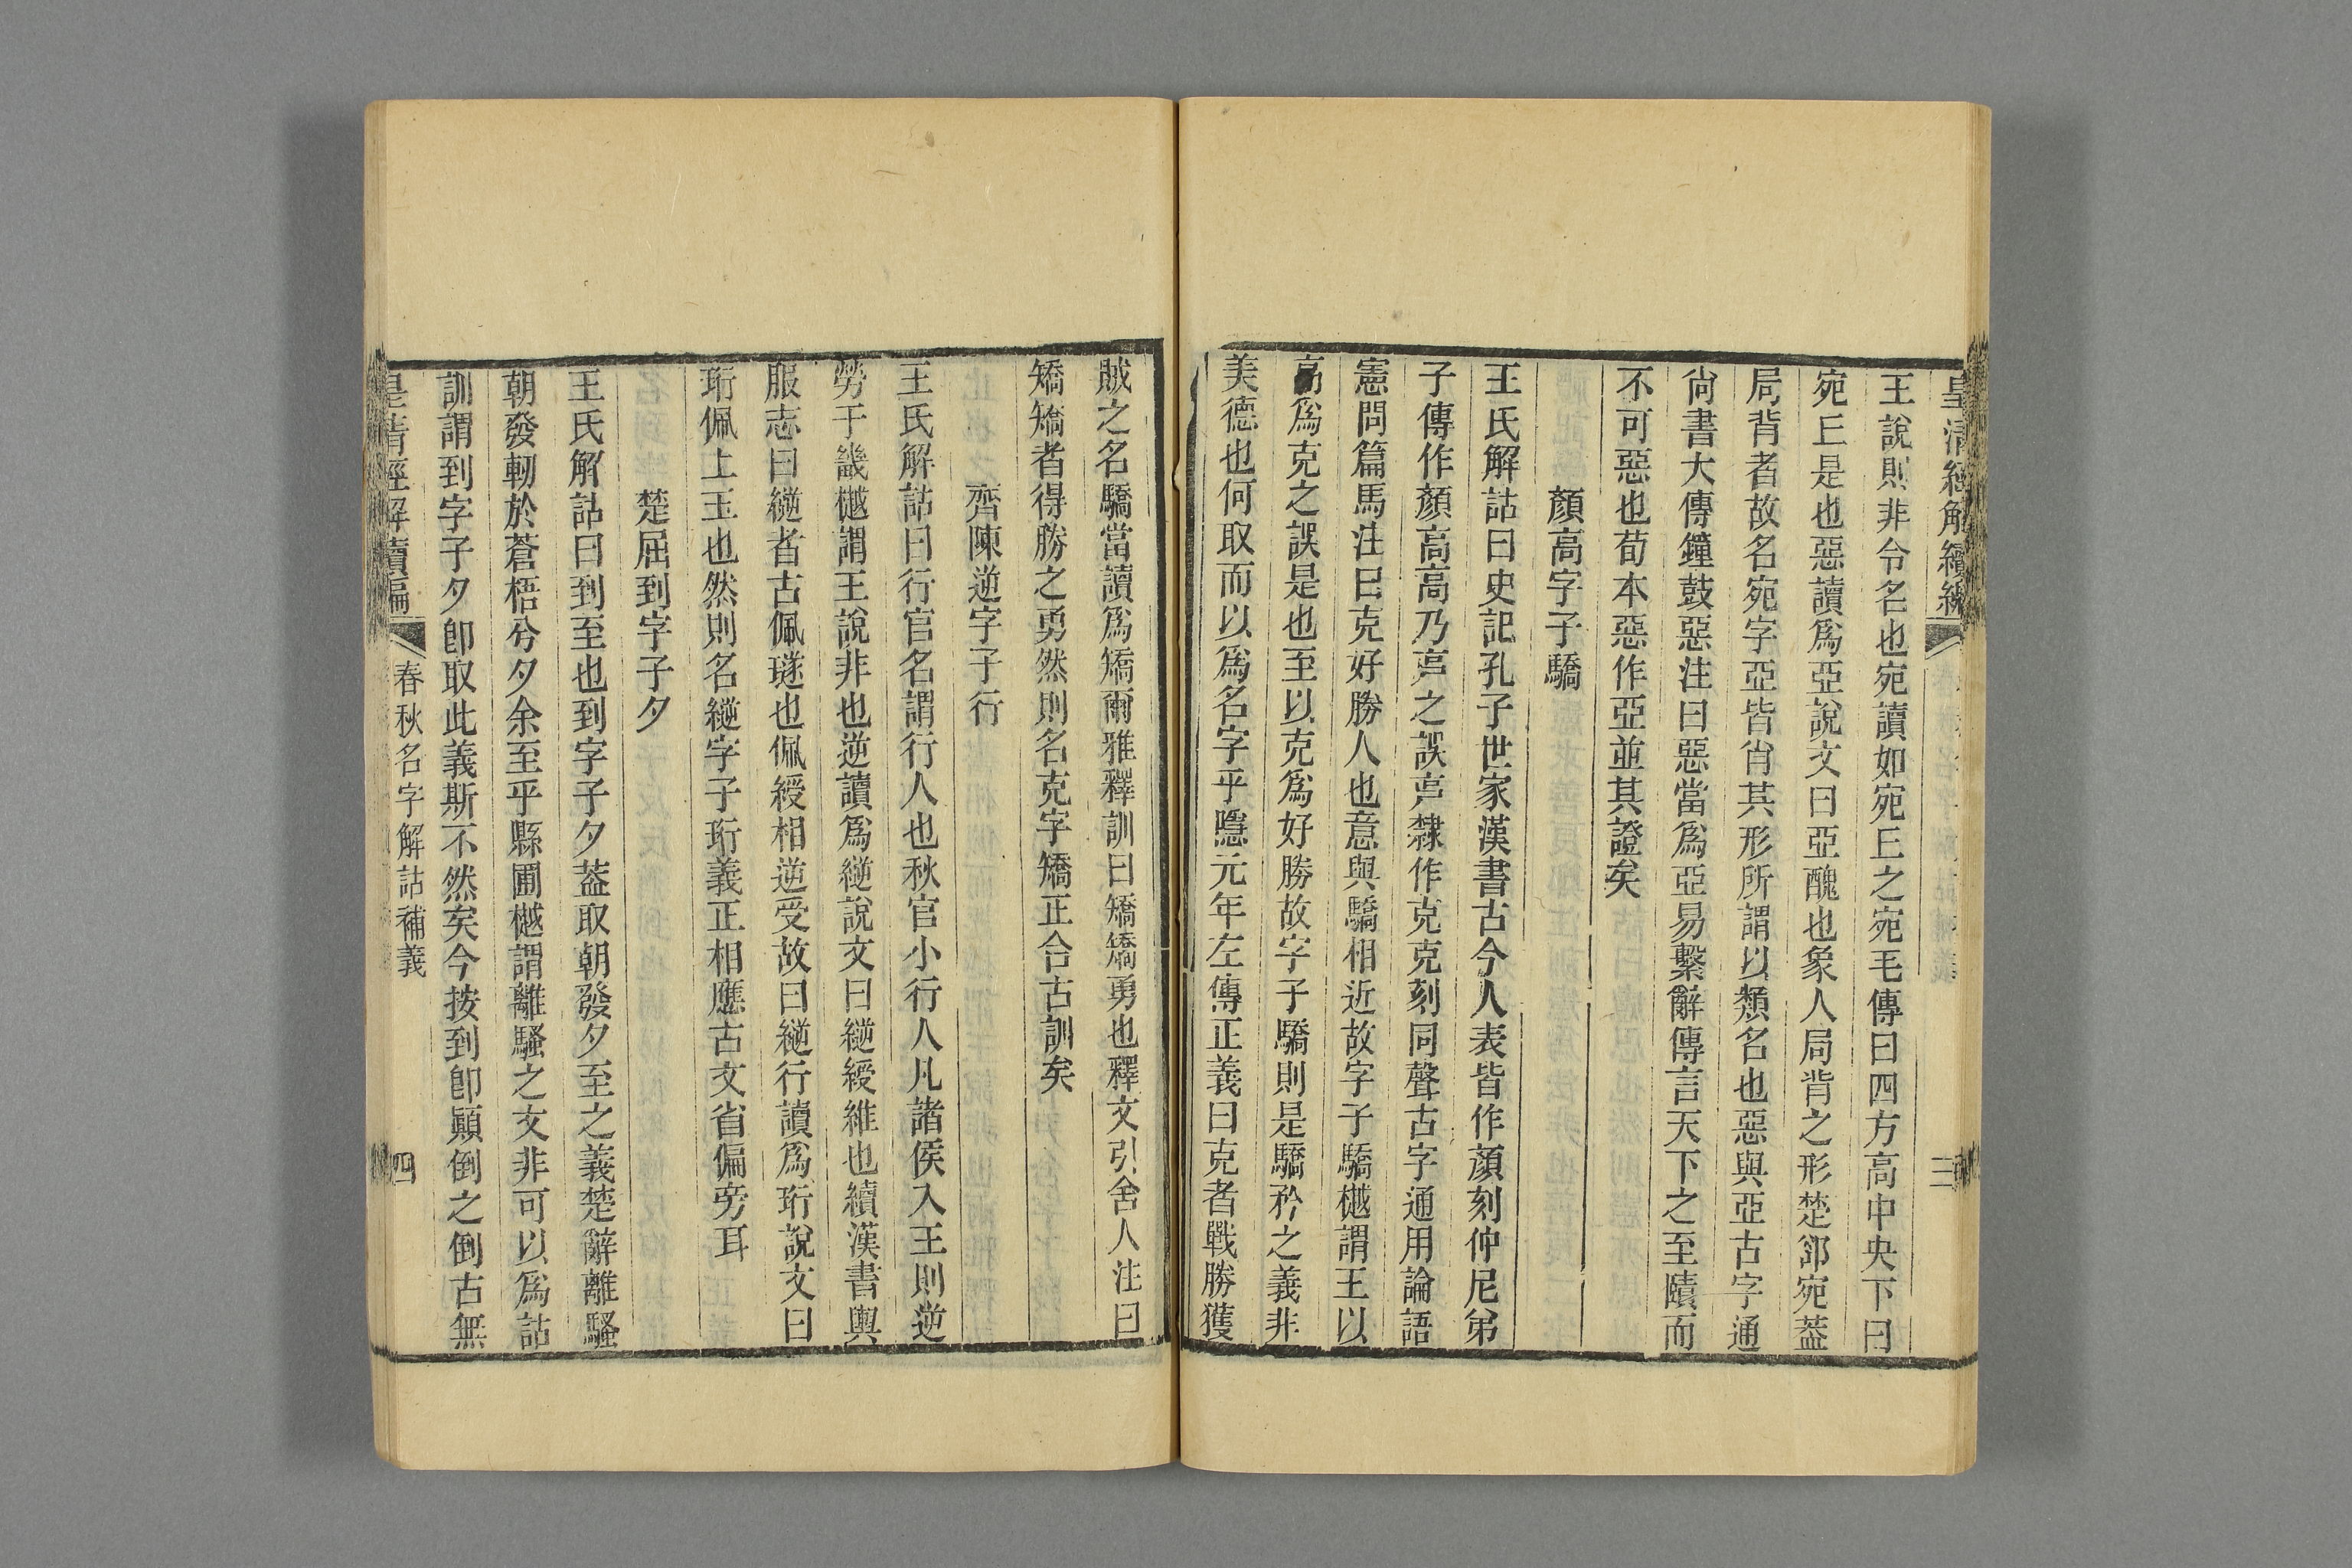 皇清經解續編
三
王說則非令名也宛讀如宛丘之宛毛傳曰四方高中央下曰
宛丘是也惡讀爲亞說文曰亞醜也象人局背之形楚郤宛葢
局背者故名宛字亞皆肖其形所謂以類名也惡與亞古字通
尙書大傳鐘鼓惡注曰惡當爲亞易繫辭傳言天下之至賾而
不可惡也荀本惡作亞並其證矣
顏高字子驕
王氏解詁曰史記孔子世家漢書古今人表皆作顏刻仲尼弟
子傳作顏高高乃亯之誤亯隸作克克刻同聲古字通用論語
憲問篇馬注曰克好勝人也意與驕相近故字子驕樾謂王以
高爲克之誤是也至以克爲好勝故字子驕則是驕矜之義非
美德也何取而以爲名字乎隱元年左傳正義曰克者戰勝獲
賊之名驕當讀爲矯爾雅釋訓曰矯矯勇也釋文引舍人注曰
矯矯者得勝之勇然則名克字矯正合古訓矣
齊陳逆字子行
王氏解詁曰行官名謂行人也秋官小行人凡諸侯入王則逆
勞于畿樾謂王說非也逆讀爲縌說文曰縌綬維也續漢書輿
服志曰縌者古佩璲也佩綬相逆受故曰縌行讀爲珩說文曰
珩佩上玉也然則名縌字子珩義正相應古文省偏旁耳
楚屈到字子夕
王氏解詁曰到至也到字子夕葢取朝發夕至之義楚辭離騷
朝發軔於蒼梧兮夕余至乎縣圃樾謂離騷之文非可以爲詁
訓謂到字子夕卽取此義斯不然矣今按到卽顚倒之倒古無
皇清經解續編
春秋名字解詁補義
四